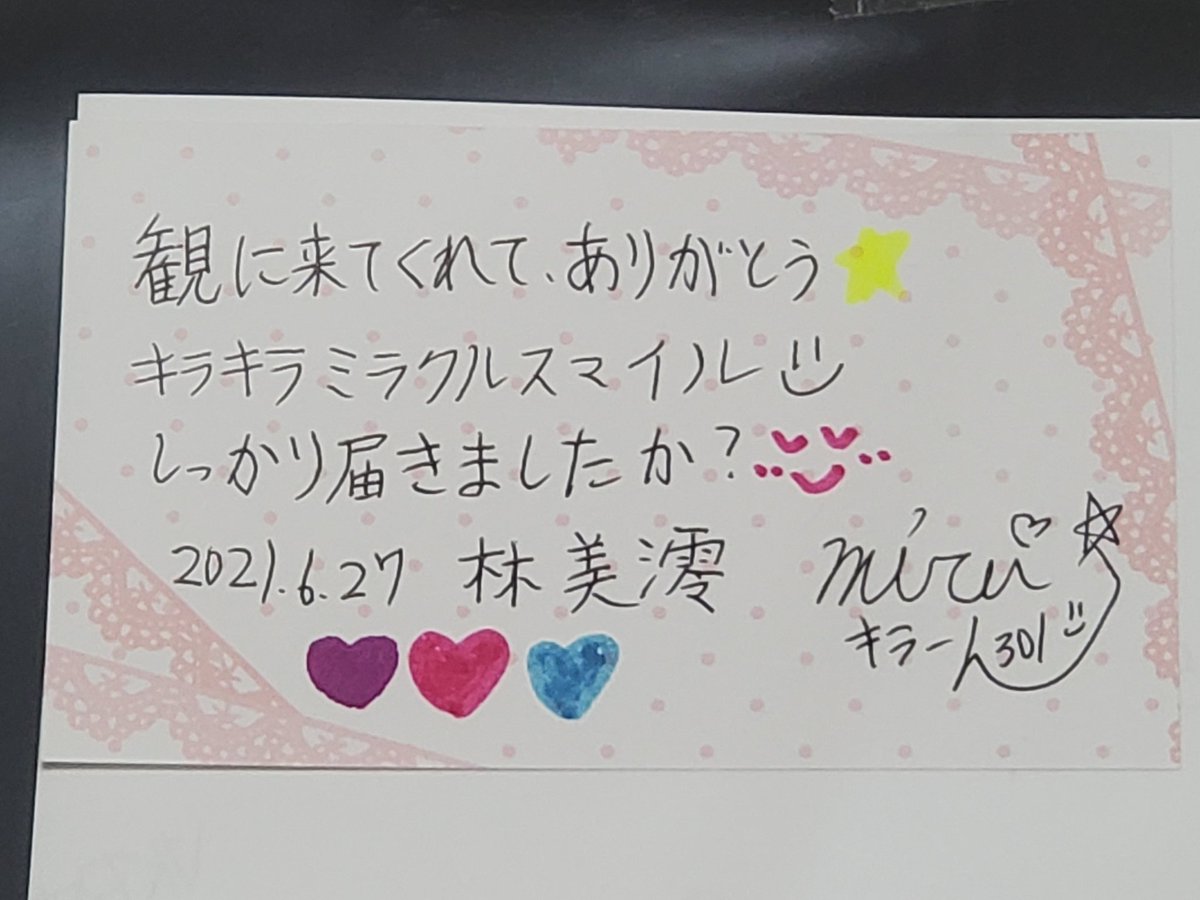 観に来てくれて、ありがとう
キラキラミラクルスマイル
しっかり届きましたか?
2021.6.27 林美澪 miru
キラーん301